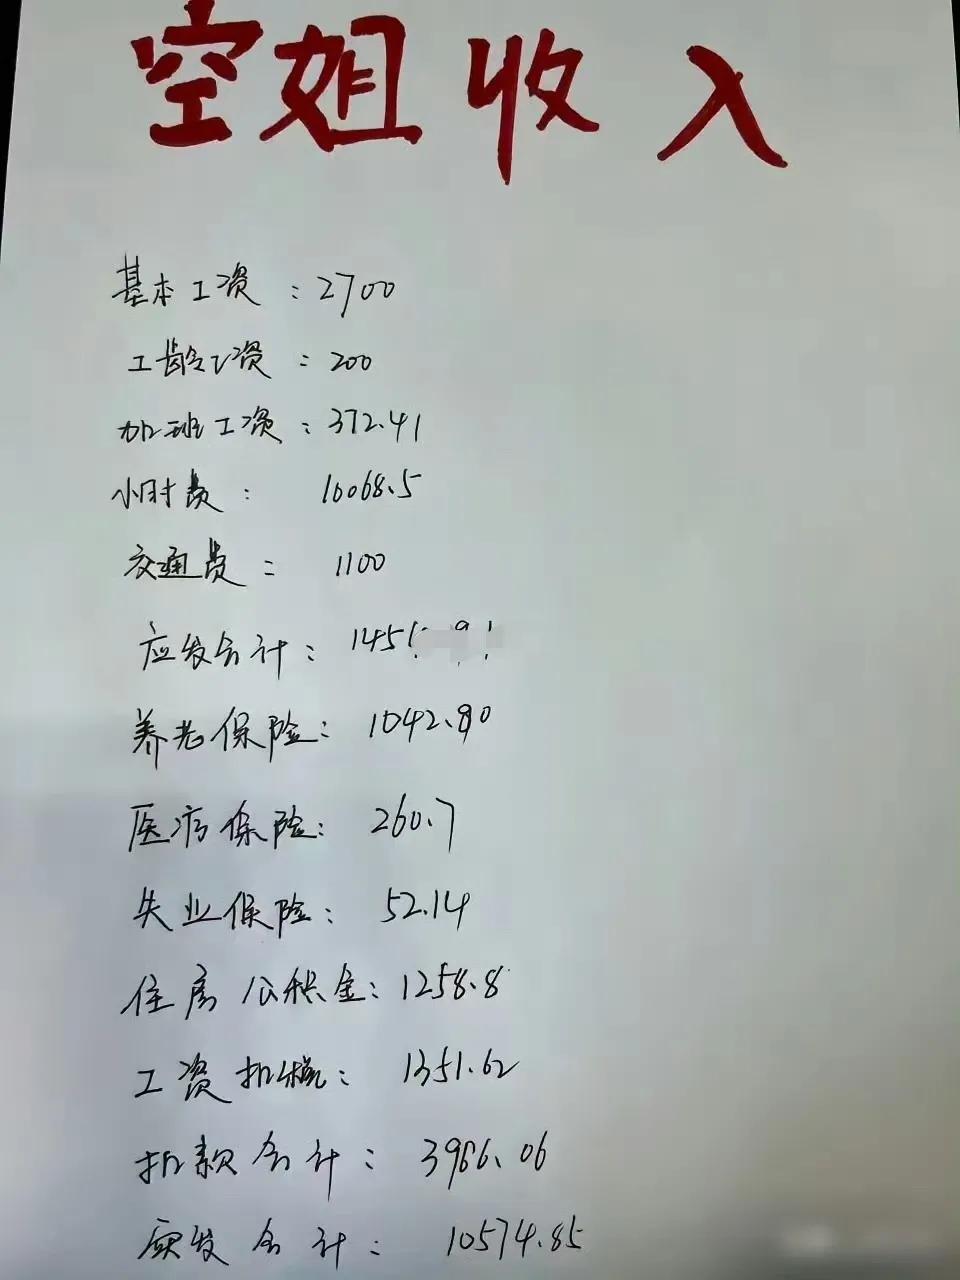 空姐收入
基本工资：2700
工龄工资：200
加班工资：372.41
小时费：10068.5
交通费：1100
应发合计：145
养老保险：1042.80
医疗保险：260.7
失业保险：52.14
住房公积金：1258.8
工资扣税：1351.62
扣款合计：3966.06
实发合计：10574.85